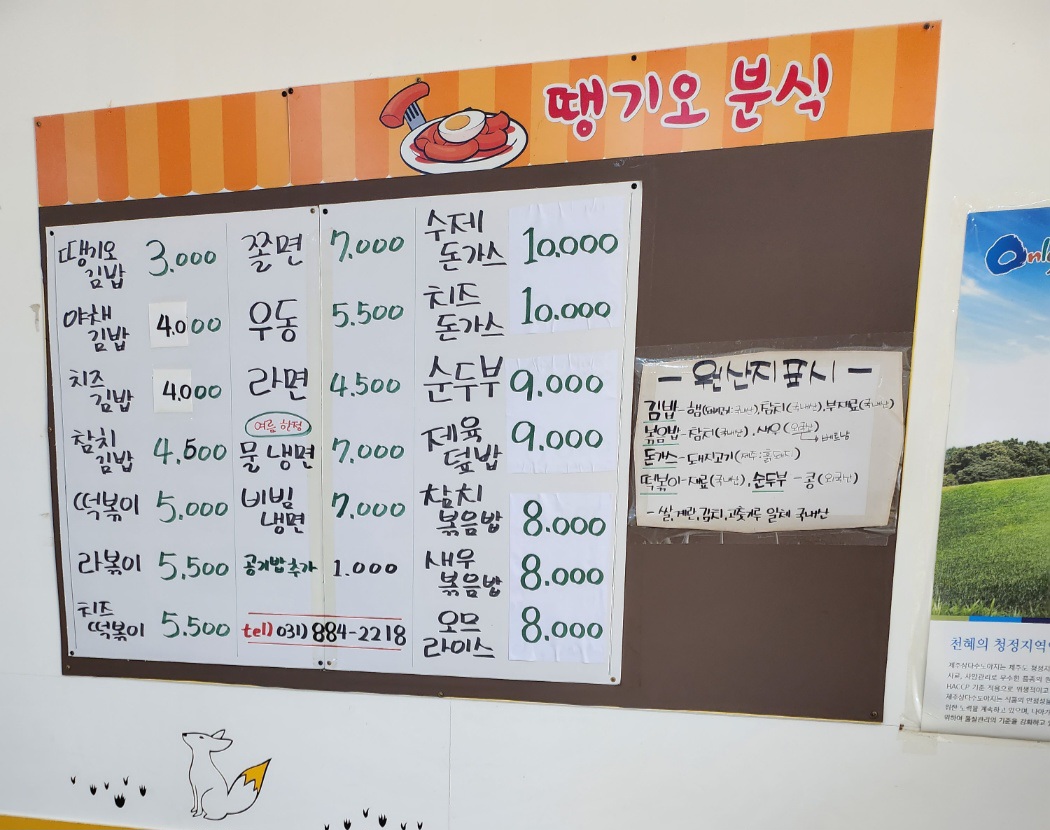 땡기오 분식
땡기오 김밥 3.000
야채 김밥 4.000
치즈 김밥 4.000
참치 김밥 4,500
떡볶이 5.000
라볶이 5,500
치즈 떡볶이 5.500
쫄면 7.000
우동 5.500
라면 4.500
여름 한정
물냉면 7.000
비빔 냉면 7.000
공기밥추가 1.000
tel) 031) 884-2218
수제 돈가스 10.000
치즈 돈가스 10.000
순두부 9.000
제육 덮밥 9.000
참치 볶음밥 8.000
새우 볶음밥 8.000
오므라이스 8.000
- 원산지표시 -
김밥-햄(국내산),참치(국내산),부재료(국내산)
볶음밥-참치(국내산),새우(외국산)
→베트남
돈가스-돼지고기
떡볶이-재료(국내산),순두부-콩(외국산)
-쌀,계란,김치,고춧가루 일체 국내산
Only
천혜의 청정지역
제주삼다수도야지는 제주도 청정지
HACCP 기준 적용으로 위생적이고